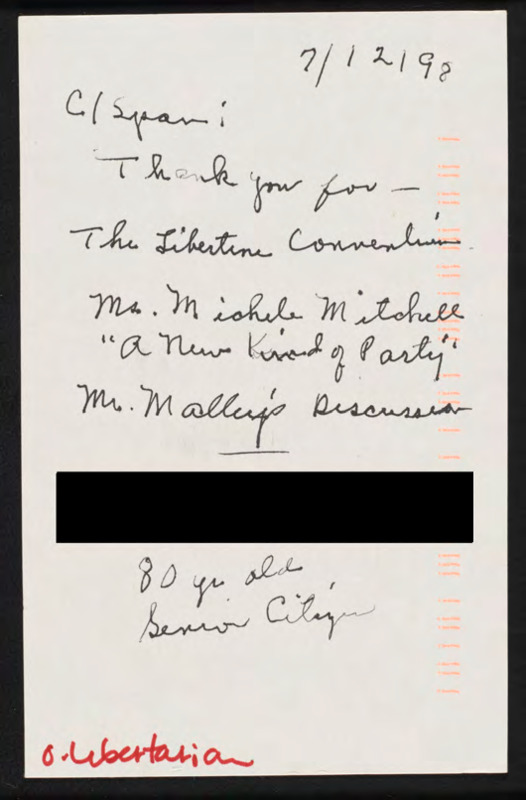 7/12/98
C/Span:
Thank you for —
The Libertine Convention
Ms. Michele Mitchell
"A New Kind of Party"
Mr. Malley's Discussion
80 yr old
Senior Citizen
o. Libertarian